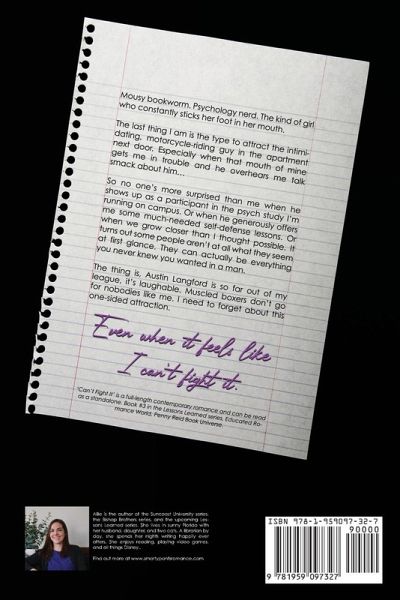 Mousy bookworm. Psychology nerd. The kind of girl
who constantly sticks her foot in her mouth.
The last thing I am is the type to attract the intimi-
dating, motorcycle-riding guy in the apartment
next door. Especially when that mouth of mine
gets me in trouble and he overhears me talk
smack about him...
So no one's more surprised than me when he
shows up as a participant in the psych study I'm
running on campus. Or when he generously offers
me some much-needed self-defense lessons. Or
when we grow closer than I thought possible. It
turns out some people aren't at all what they seem
at first glance. They can actually be everything
you never knew you wanted in a man.
The thing is, Austin Langford is so far out of my
league, it's laughable. Muscled boxers don't go
for nobodies like me. I need to forget about this
one-sided attraction.
Even when it feels like
I can't fight it.
'Can't Fight It' is a full-length contemporary romance and can be read
as a standalone. Book #3 in the Lessons Learned series, Educated Ro-
mance World, Penny Reid Book Universe.
Allie is the author of the Suncoast University series,
the Bishop Brothers series, and the upcoming Les-
sons Learned series. She lives in sunny Florida with
her husband, daughter, and two cats. A librarian by
day, she spends her nights writing happily ever
afters. She enjoys reading, playing video games,
and all things Disney...
Find out more at www.smartypantsromance.com
ISBN 978-1-959097-32-7
90000
9 781959 097327